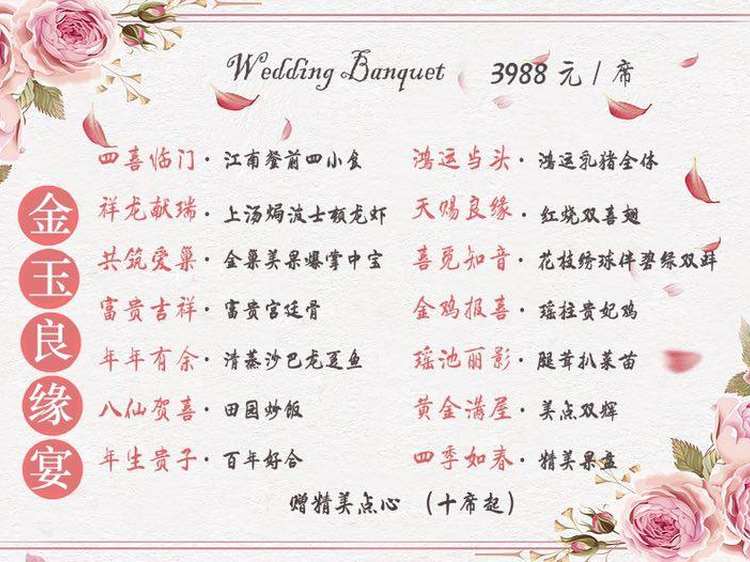 Wedding Banquet 3988 元/席
金玉良缘宴
四喜临门·江南餐前四小食
祥龙献瑞·上汤焗波士顿龙虾
共筑爱巢·金巢美果爆掌中宝
富贵吉祥·富贵宫廷骨
年年有余·清蒸沙巴龙趸鱼
八仙贺喜·田园炒饭
年生贵子·百年好合
鸿运当头·鸿运乳猪全体
天赐良缘·红烧双喜翅
喜觅知音·花枝绣球伴碧绿双蚌
金鸡报喜·瑶柱贵妃鸡
瑶池丽影·腿茸扒菜苗
黄金满屋·美点双辉
四季如春·精美果盘
赠精美点心 （十席起）